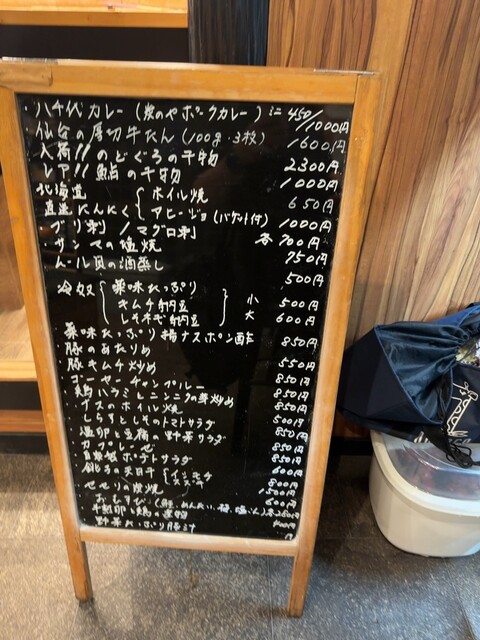 八千代カレー(炭のやポークカレー)ミニ450/1000円
仙台の厚切牛たん(100g・3枚) 1600円
入荷!!のどぐろの干物 2300円
レア!!鮎の干物 1000円
北海道直送にんにく{ホイル焼 650円
アヒージョ(バゲット付) 1000円
ブリ刺/マグロ刺 各700円
サンマの塩焼 750円
ムール貝の酒蒸し
冷奴{薬味たっぷり 500円
キムチ納豆 小 500円
しそネギ納豆 大 600円
薬味たっぷり揚ナスポン酢 850円
豚のあたりめ 550円
豚キムチ炒め 850円
ゴーヤーチャンプルー 850円
鶏ハラミとニンニクの芽炒め 850円
ホイル焼 500円
しそのトマトサラダ 850円
温卵と豆腐の野菜サラダ 850円
自家製ポテトサラダ 600円
セセリの炭焼
おむすび
野菜たっぷり豚汁